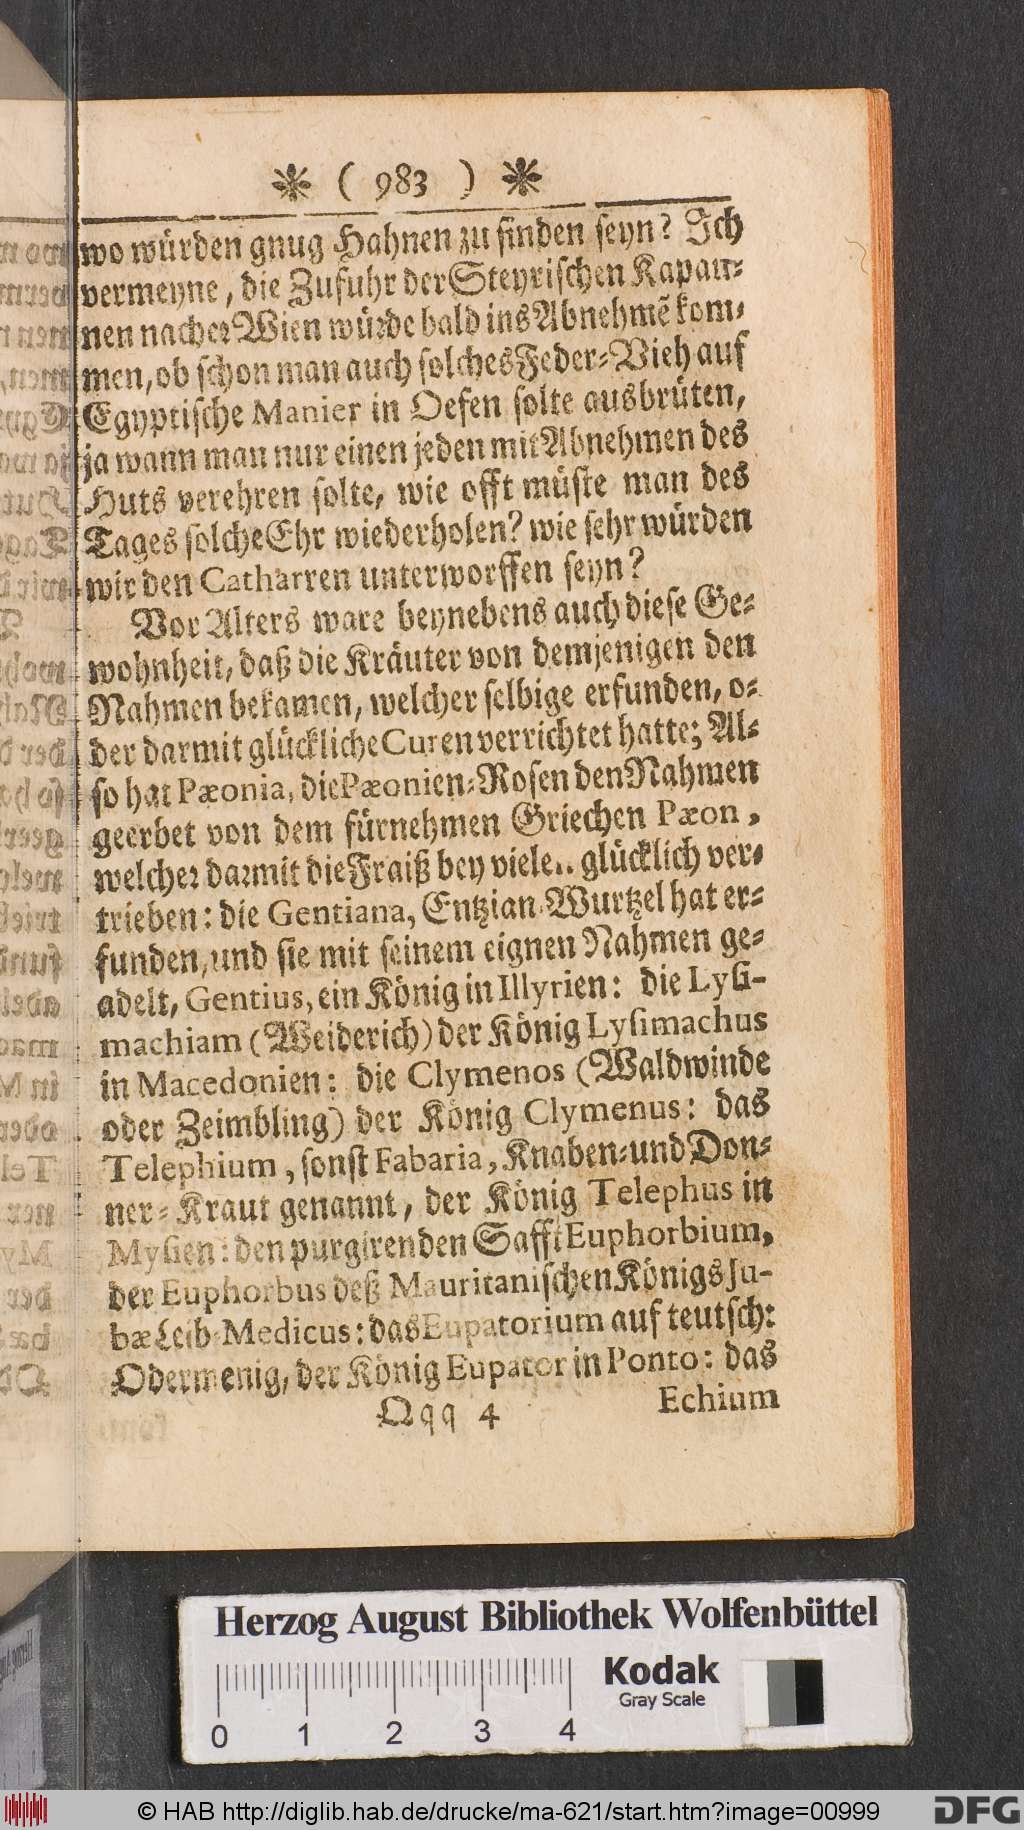 * ( 983 ) *
wo würden gnug Hahnen zu finden seyn? Ich
vermeyne, die Zufuhr der Steyrischen Kapau-
nen nacher Wien würde bald ins Abnehmẽ kom-
men, ob schon man auch solches Feder-Vieh auf
Egyptische Manier in Oefen solte ausbrüten,
ja wann man nur einen jeden mit Abnehmen des
Huts verehren solte, wie offt müste man des
Tages solche Ehr wiederholen? wie sehr würden
wir den Catharren unterworffen seyn?
Vor Alters ware beynebens auch diese Ge-
wohnheit, daß die Kräuter von demjenigen den
Nahmen bekamen, welcher selbige erfunden, o-
der darmit glückliche Curen verrichtet hatte; Al-
so hat Pæonia, die Pæonien-Rosen den Nahmen
geerbet von dem fürnehmen Griechen Pæon,
welcher darmit die Fraiß bey vielen glücklich ver-
trieben: die Gentiana, Entzian-Wurtzel hat er-
funden, und sie mit seinem eignen Nahmen ge-
adelt, Gentius, ein König in Illyrien: die Lysi-
machiam (Weiderich) der König Lysimachus
in Macedonien: die Clymenos (Waldwinde
oder Zeimbling) der König Clymenus: das
Telephium, sonst Fabaria, Knaben- und Don-
ner-Kraut genannt, der König Telephus in
Mysien: den purgirenden Safft Euphorbium,
der Euphorbus deß Mauritanischen Königs Ju-
bæ Leib-Medicus: das Eupatorium auf teutsch:
Odermenig, der König Eupator in Ponto: das
Qqq 4 Echium
Herzog August Bibliothek Wolfenbüttel
Kodak
Gray Scale
0 1 2 3 4
© HAB http://diglib.hab.de/drucke/ma-621/start.htm?image=00999
DFG